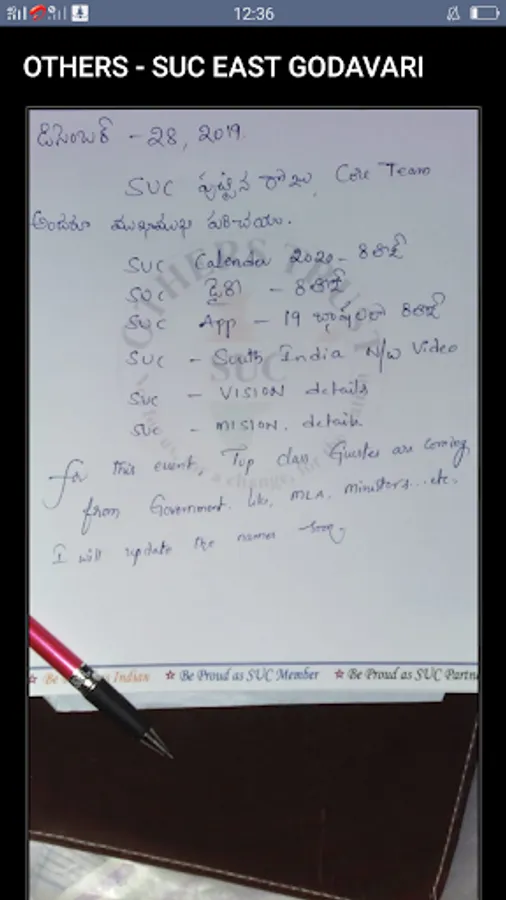 12:36
OTHERS - SUC EAST GODAVARI
డిసెంబర్ - 28, 2019.
SUC పుట్టిన రోజు, Core Team
అందరూ ముఖాముఖి పరిచయం.
SUC Calender 2020 - రిలీజ్
SUC డైరీ - రిలీజ్
SUC App - 19 భాషలలో రిలీజ్
SUC - South India N/W Video
SUC - VISION details
SUC - MISION. details
For this event, Top class Guestes are coming
from Government. like, MLA, Ministers... etc.
I will update the names soon.
OTHERS TRUST
SUC
Indian ★ Be Proud as SUC Member ★ Be Proud as SUC Partn